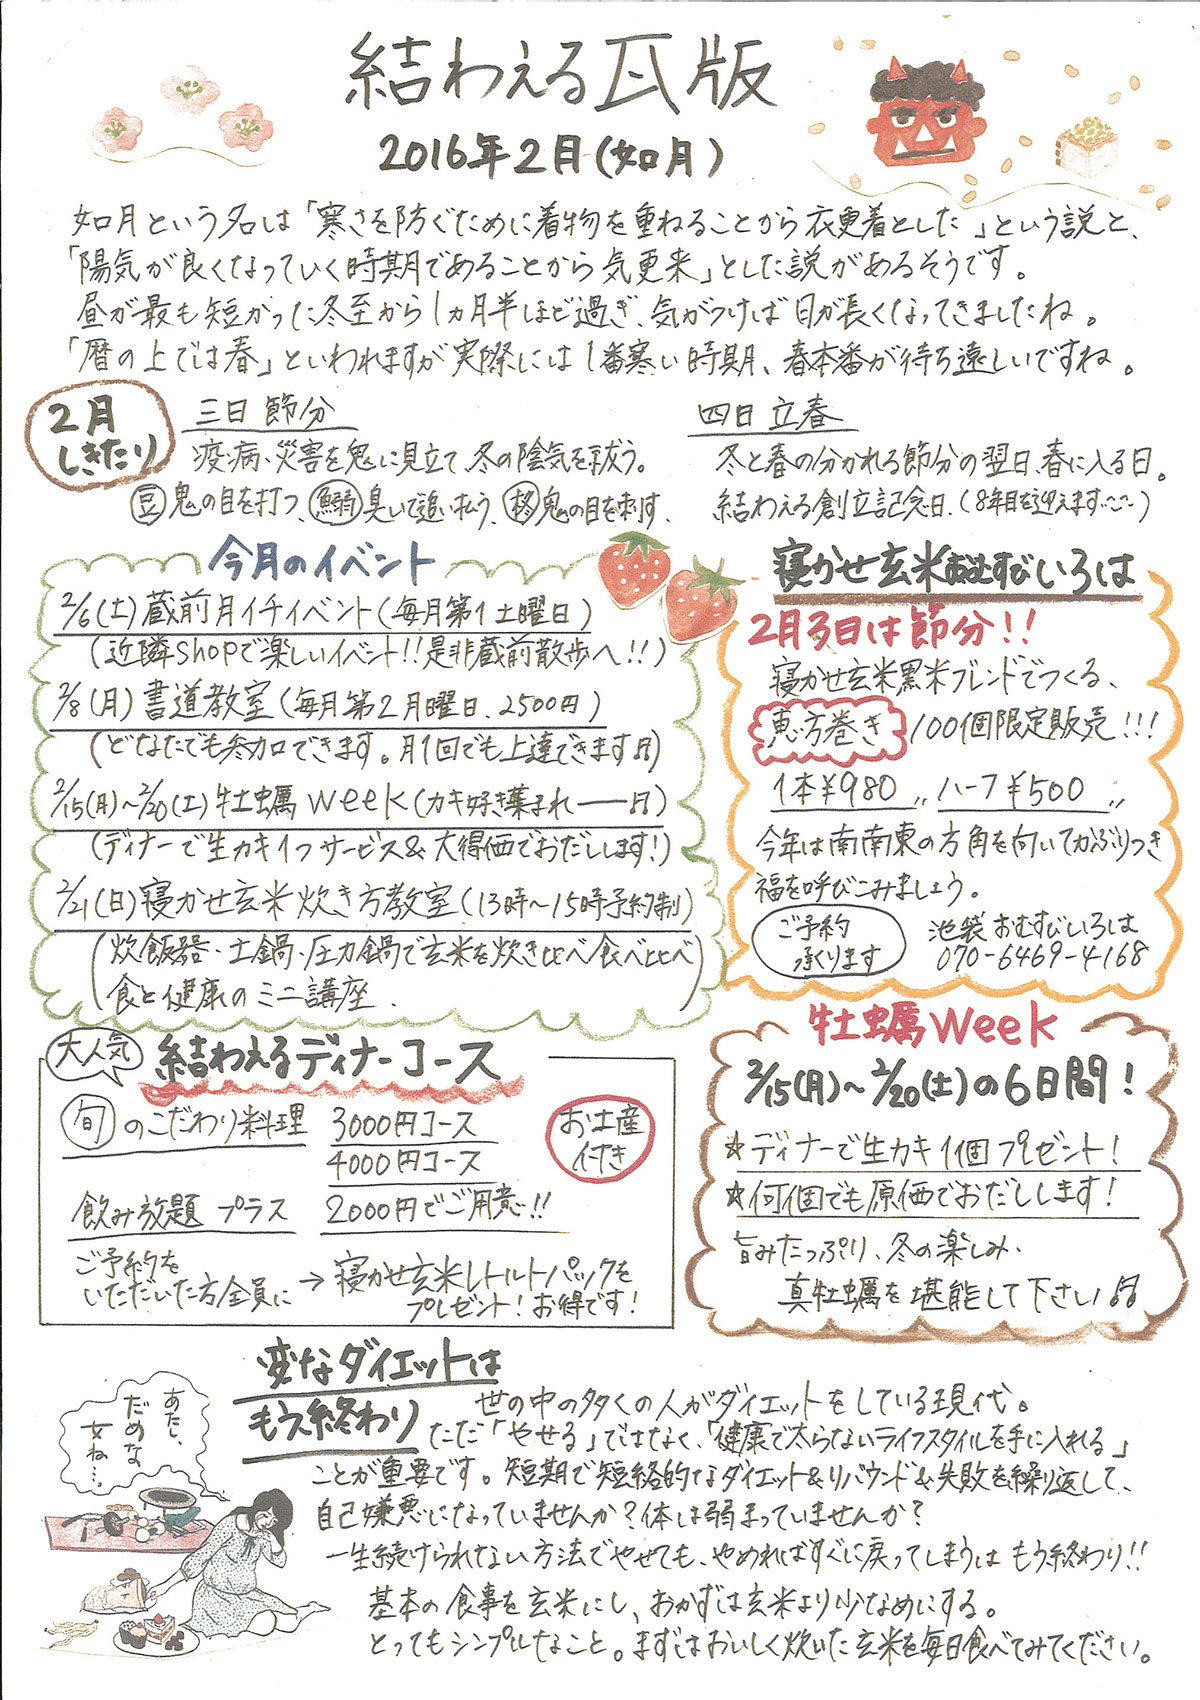 結わえる瓦版
2016年2月(如月)
如月という名は「寒さを防ぐために着物を重ねることから衣更着とした」という説と、
「陽気が良くなっていく時期であることから気更来」とした説があるそうです。
昼が最も短かった冬至から1ヵ月半ほど過ぎ、気がつけば日が長くなってきましたね。
「暦の上では春」といわれますが実際には1番寒い時期、春本番が待ち遠しいですね。
2月
しきたり
三日 節分
疫病、災害を鬼に見立て、冬の陰気を祓う。
豆 鬼の目を打つ、鰯 臭いで追い払う、柊 鬼の目を刺す、
四日 立春
冬と春の分かれる節分の翌日、春に入る日。
結わえる創立記念日、(8年目を迎えます…)
今月のイベント
2/6(土)蔵前月イチイベント(毎月第1土曜日)
(近隣shopで楽しいイベント!!是非蔵前散歩へ!!)
2/8(月)書道教室(毎月第2月曜日、2500円)
(どなたでも参加できます。月1回でも上達できます♫)
2/15(月)~2/20(土)牡蠣week(カキ好き集まれ――♫)
(ディナーで生カキ1つサービス&大得価でおだしします!)
2/21(日)寝かせ玄米炊き方教室(13時~15時予約制)
(炊飯器・土鍋・圧力鍋で玄米を炊き比べ食べ比べ)
(食と健康のミニ講座、)
寝かせ玄米おむすびいろは
2月3日は節分!!
寝かせ玄米黒米ブレンドでつくる、
恵方巻き 100個限定販売!!!
1本¥980〃 ハーフ¥500〃
今年は南南東の方角を向いてかぶりつき
福を呼びこみましょう。
ご予約
承ります
池袋おむすびいろは
070-6469-4168
大人気
結わえるディナーコース
旬のこだわり料理 3000円コース
4000円コース
お土産
付き
飲み放題 プラス 2000円でご用意!!
ご予約を
いただいた方全員に→寝かせ玄米レトルトパックを
プレゼント!お得です!
牡蠣Week
2/15(月)~2/20(土)の6日間!
☆ディナーで生カキ1個プレゼント!
☆何個でも原価でおだしします!
旨みたっぷり、冬の楽しみ、
真牡蠣を堪能して下さい♫
変なダイエットは
もう終わり
あたし、
だめな
女ね…。
世の中の多くの人がダイエットをしている現代。
ただ「やせる」ではなく、「健康で太らないライフスタイルを手に入れる」
ことが重要です。短期で短絡的なダイエット&リバウンド&失敗を繰り返して、
自己嫌悪になっていませんか?体は弱まっていませんか?
一生続けられない方法でやせても、やめればすぐに戻ってしまうはもう終わり!!
基本の食事を玄米にし、おかずは玄米より少なめにする。
とってもシンプルなこと。まずはおいしく炊いた玄米を毎日食べてみてください。